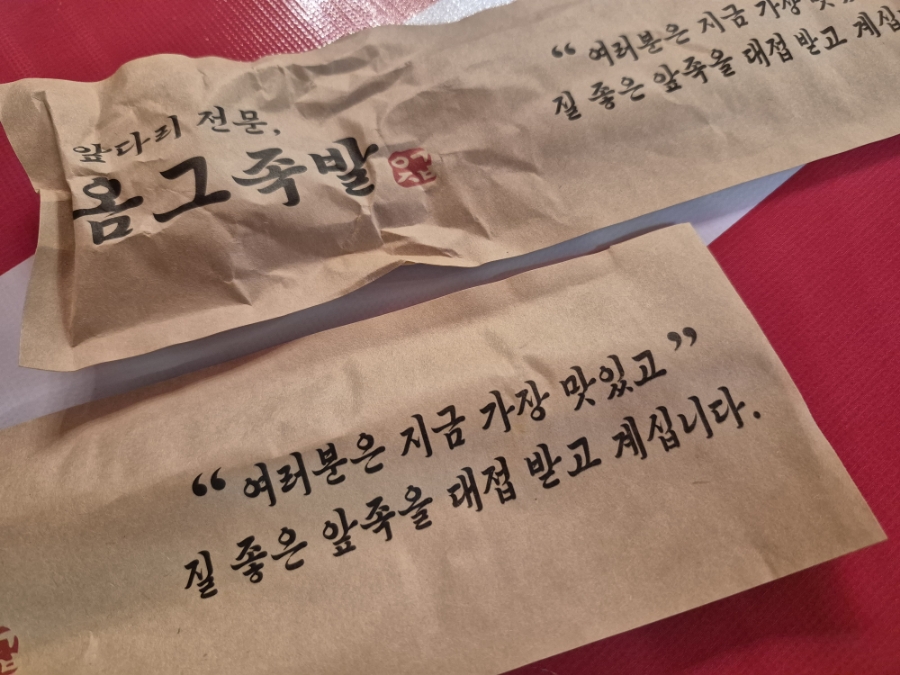 앞다리 전문,
옴그족발
“ 여러분은 지금 가장
질 좋은 앞족을 대접 받고 계십
“ 여러분은 지금 가장 맛있고 ”
질 좋은 앞족을 대접 받고 계십니다.